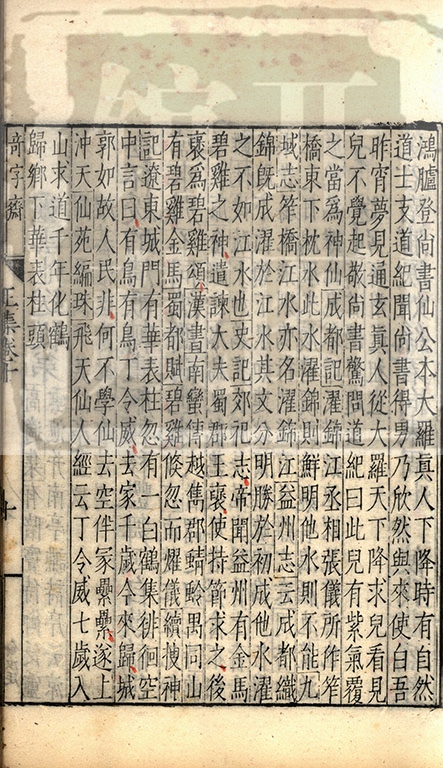 鴻臚登尚書仙公本大羅真人下降時有自然
道士支道紀聞尚書得男乃欣然與來使白吾
昨宵夢見通玄真人從大羅天下降求兒看見
兒不覺起敬尚書驚問道紀曰此兒有紫氣覆
之當為神仙成都記濯錦江丞相張儀所作笮
橋東下枕水此水濯錦則鮮明他水則不能九
域志笮橋江水亦名濯錦江益州志云成都織
錦旣成濯於江水其文分明勝於初成他水濯
之不如江水也史記郊祀志帝聞益州有金馬
碧雞之神遣諫大夫蜀郡王襃使持節求之後
襃爲碧雞頌漢書南蠻傳越雋郡蜻蛉禺同山
有碧雞金馬蜀都賦碧雞倏忽而燿儀續搜神
記遼東城門有華表柱忽有一白鶴集徘徊空
中言曰有鳥有鳥丁令威去家千歲今來歸城
郭如故人民非何不學仙去空伴冢纍纍遂上
沖天仙苑編珠飛天仙人經云丁令威七歲入
山求道千年化鶴
歸鄉下華表柱頭
奇字齋
十